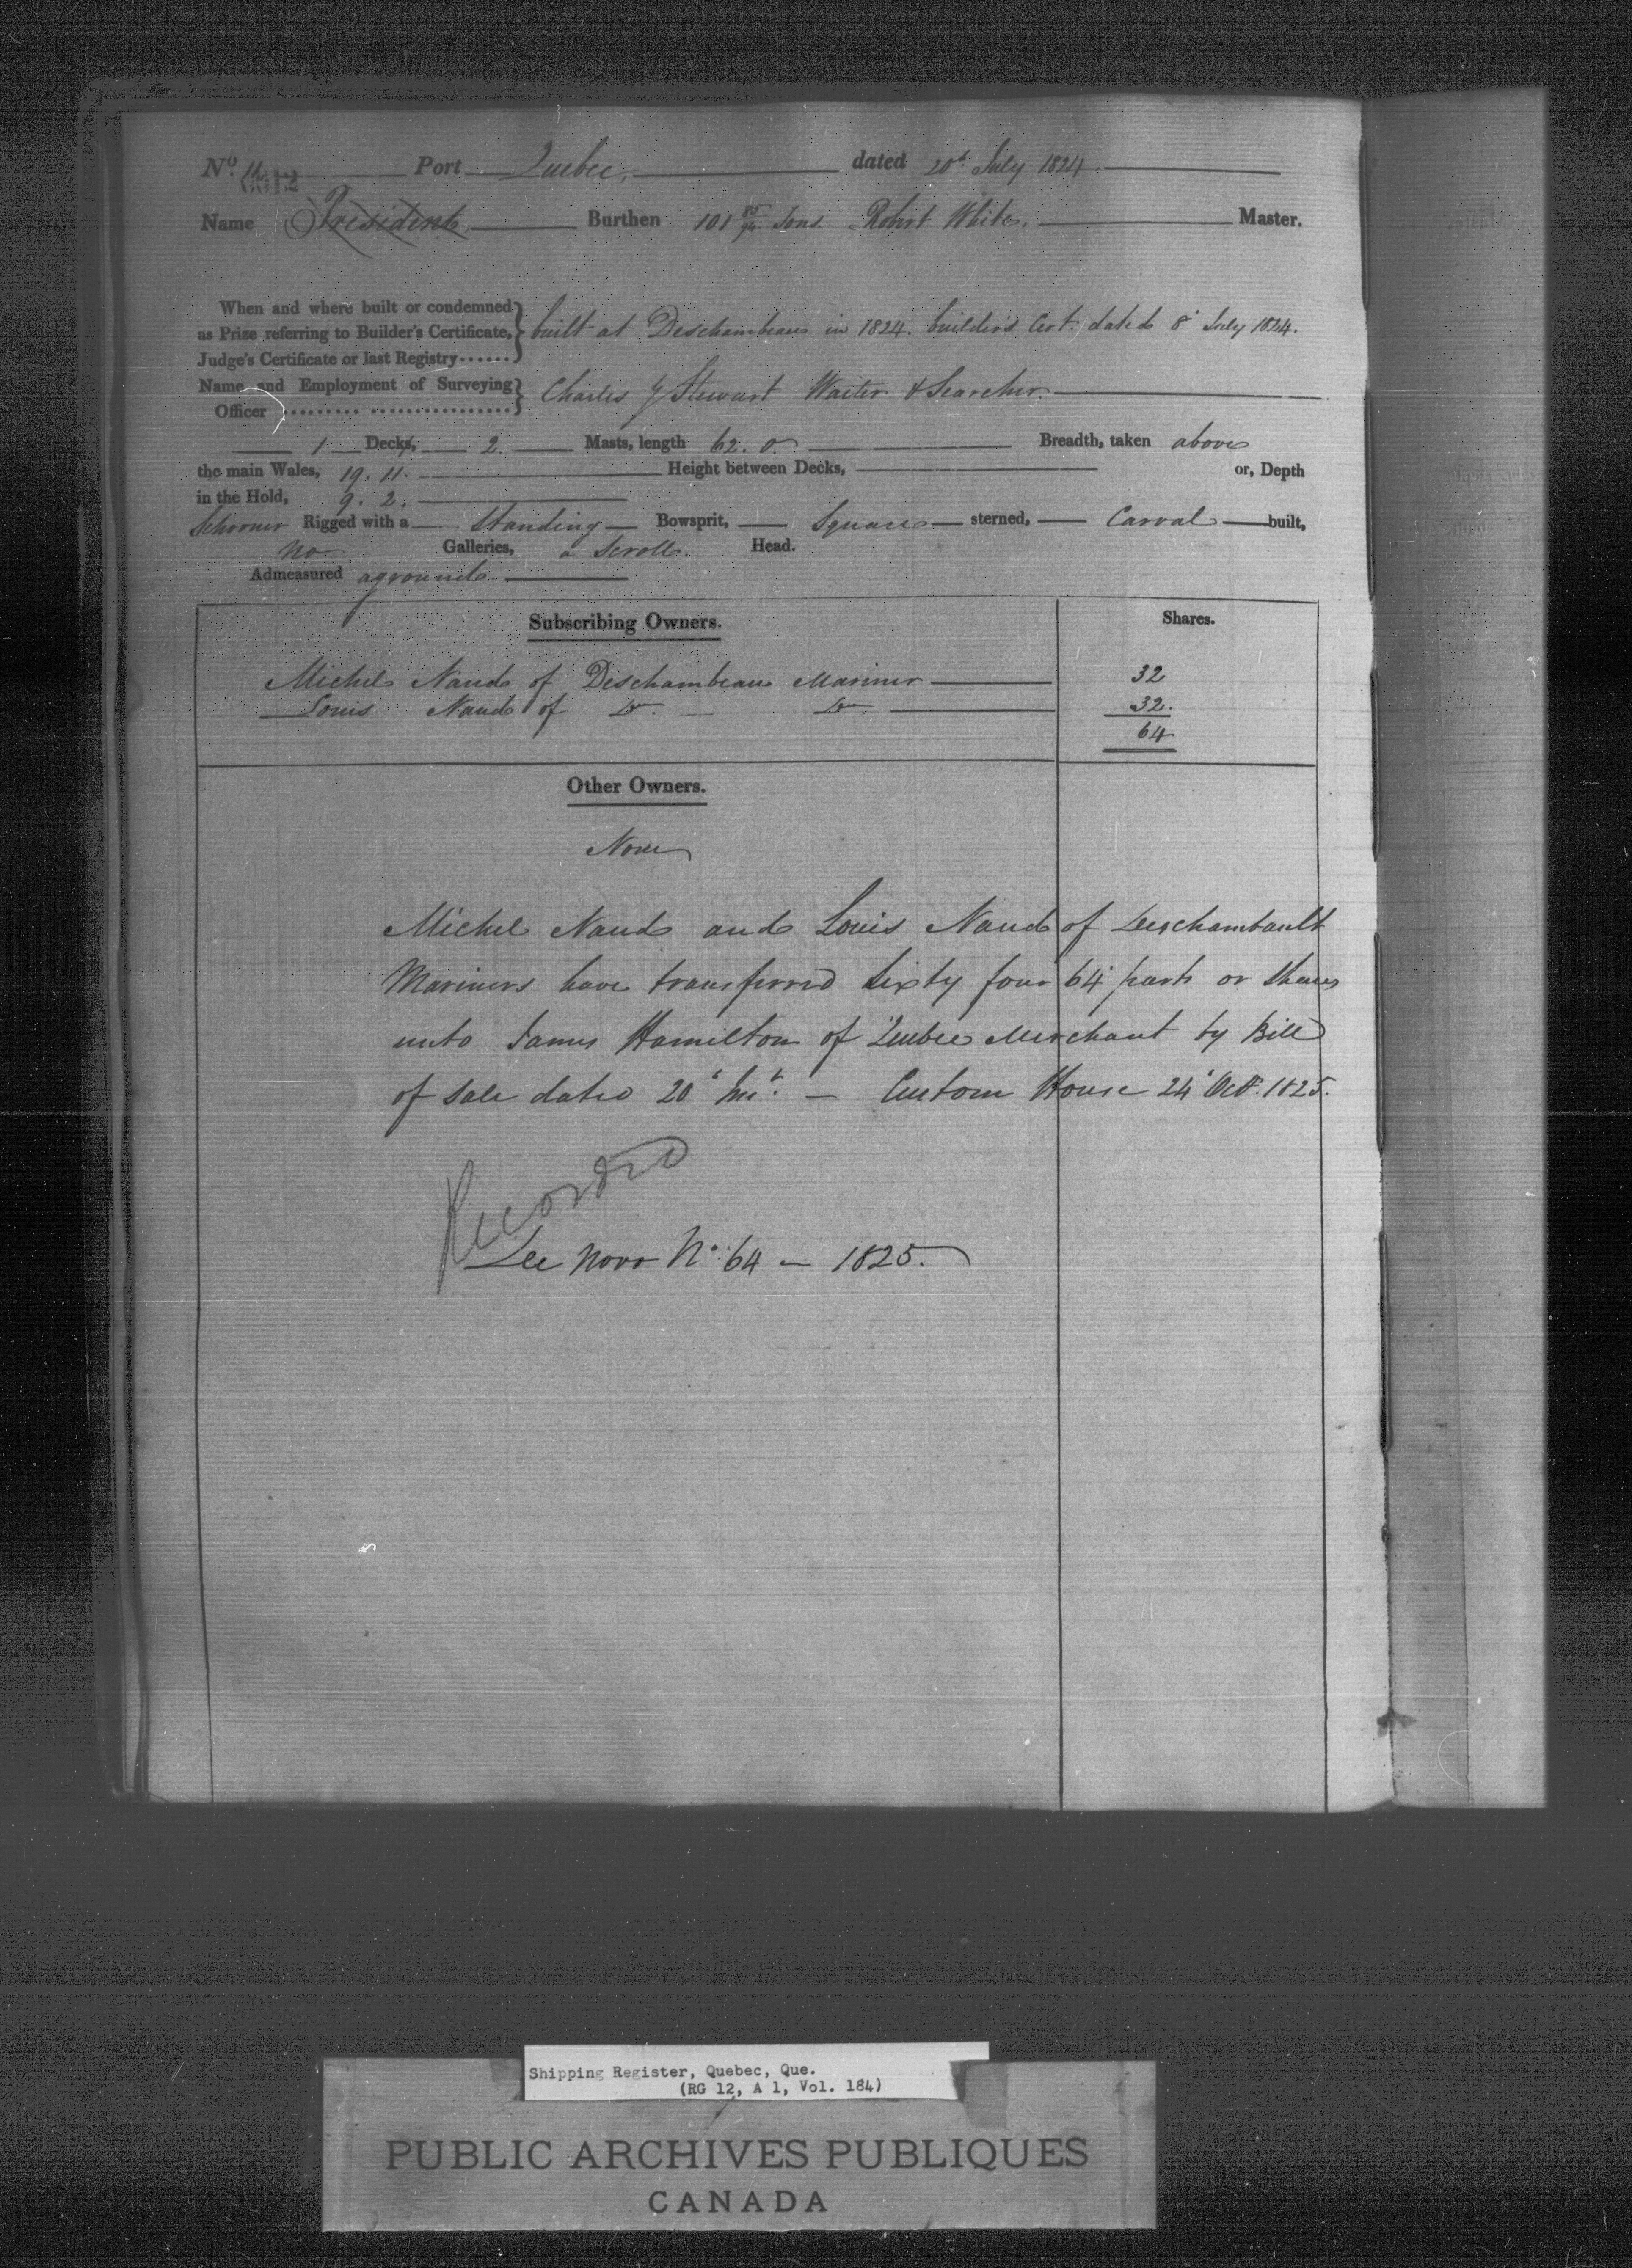 No. 11 Port Quebec. dated 20th July 1824
Name President Burthen 101 85/94 Tons. Robert White. Master.
When and where built or condemned
as Prize referring to Builder's Certificate, built at Deschambeau in 1824. builder's Cert. dated 8' July 1824.
Judge's Certificate or last Registry
Name and Employment of Surveying
Officer Charles G Stewart Waiter & Searcher.
1 Decks, 2. Masts, length 62. 0. Breadth, taken above
the main Wales, 19. 11. Height between Decks, or, Depth
in the Hold, 9. 2.
Schooner Rigged with a Standing Bowsprit, Square sterned, Carval built,
no Galleries, a Scroll. Head.
Admeasured aground.
Subscribing Owners. Shares.
Michel Naud of Deschambeau Mariner 32
Louis Naud of Do. Do. 32.
64
Other Owners.
None
Michel Naud and Louis Naud of Deschambault
Mariners have transferred Sixty four 64' parts or Shares
unto James Hamilton of Quebec Merchant by Bill
of Sale dated 20' Int. — Custom House 24' Oct. 1825.
Recorded
See Novo No. 64 — 1825.
Shipping Register, Quebec, Que.
(RG 12, A 1, Vol. 184)
PUBLIC ARCHIVES PUBLIQUES
CANADA